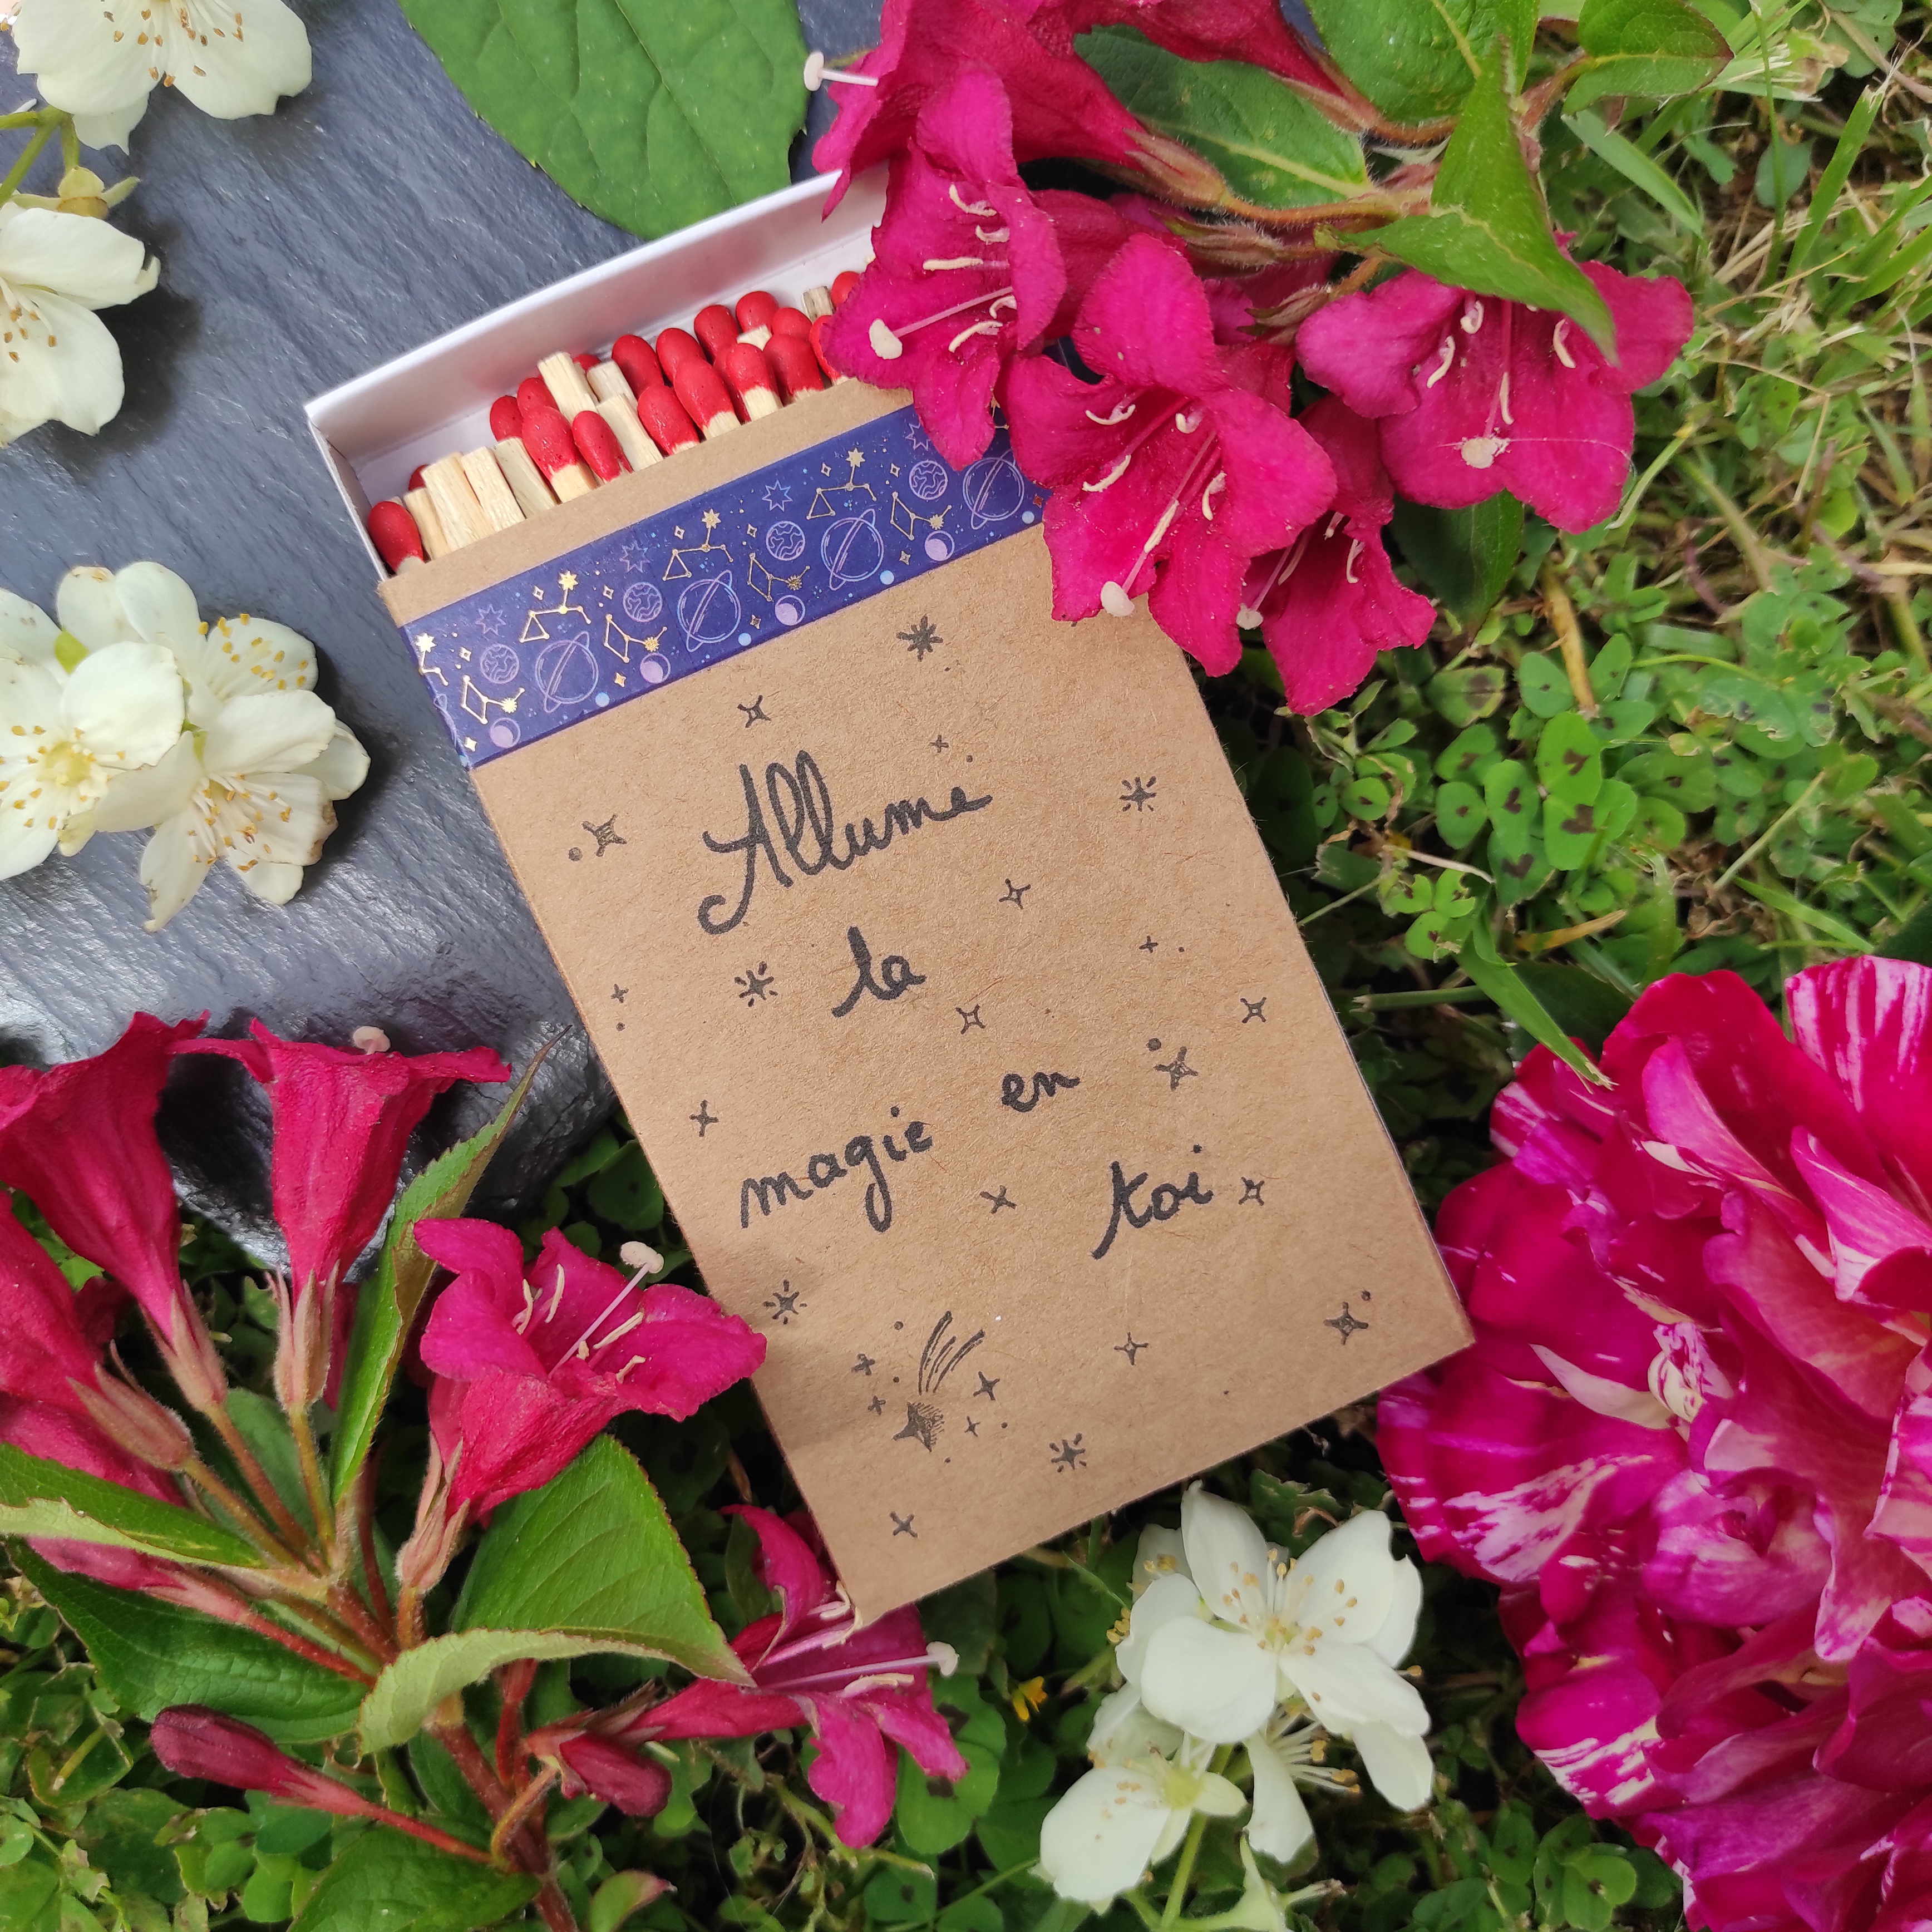 Allume
la
magie en
toi